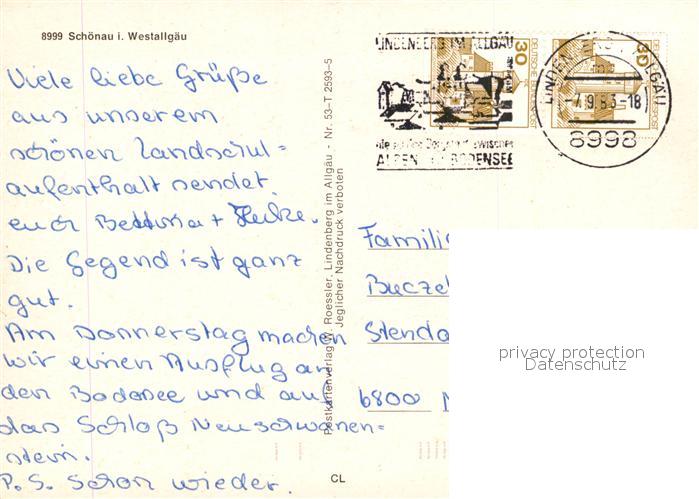 8999 Schönau i. Westallgäu
Viele liebe Grüße
aus unserem
schönen Landschul=
aufenthalt sendet
euch Bettina + Heike.
Die Gegend ist ganz
gut.
Am Donnerstag machen
wir einen Ausflug an
den Bodensee und auf
das Schloß Neuschwanen=
stein.
P.S. Schon wieder.
Postkartenverlag W. Roessler, Lindenberg im Allgäu - Nr. 53-T 2593-5
Jeglicher Nachdruck verboten
CL
LINDENBERG IM ALLGÄU
ALPEN BODENSEE
30
DEUTSCHE BUNDESPOST
30
LINDENBERG ALLGÄU
-7.9.83-18
8998
Famili
Bucze
Stenda
6800
privacy protection
Datenschutz